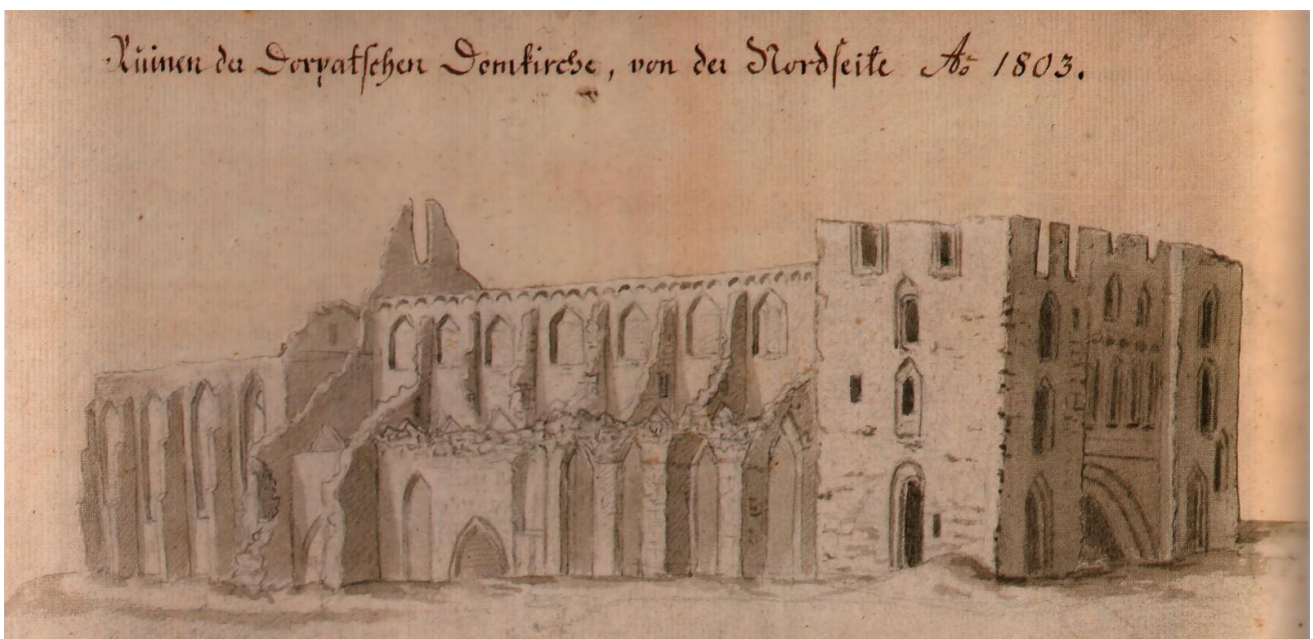 Ruinen der Dorpatschen Domkirche, von der Nordseite Ao 1803.